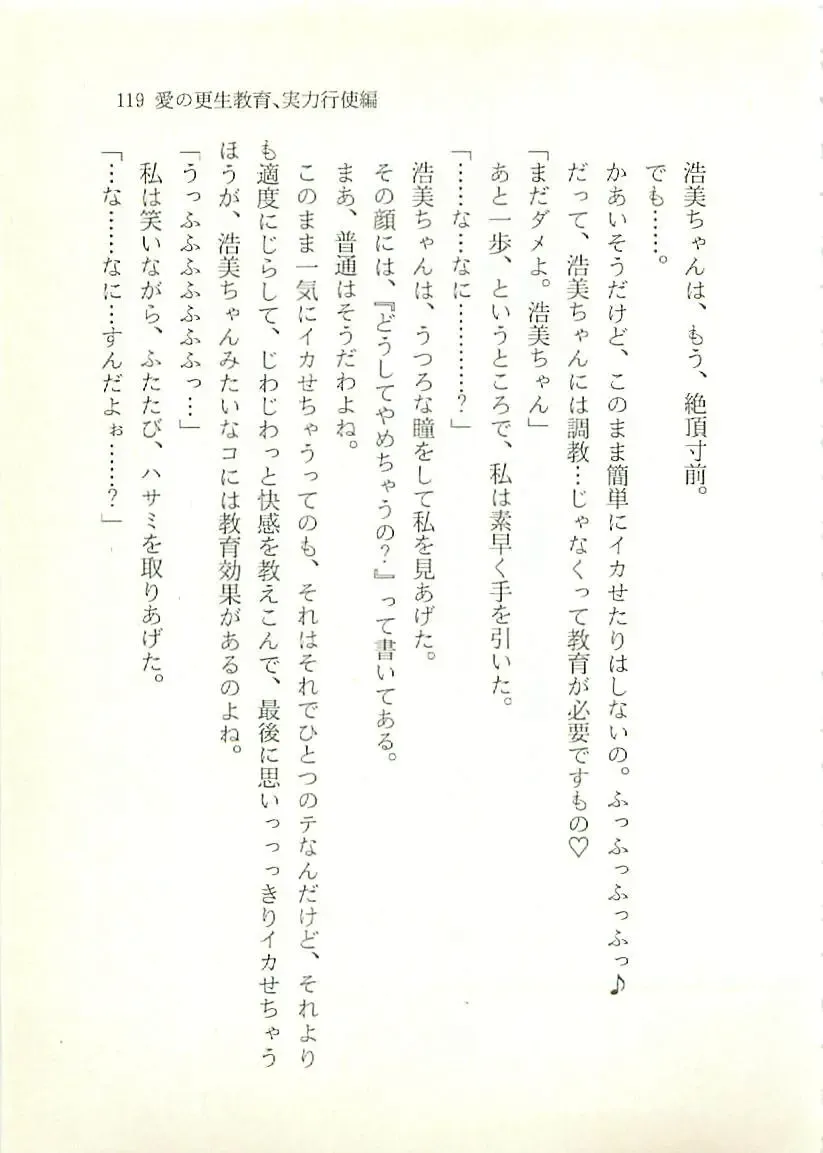 119 愛の更生教育、実力行使編
浩美ちゃんは、もう、絶頂寸前。
でも……。
かあいそうだけど、このまま簡単にイカせたりはしないの。ふっふっふっふっ♪
だって、浩美ちゃんには調教…じゃなくって教育が必要ですもの♡
「まだダメよ。浩美ちゃん」
あと一歩、というところで、私は素早く手を引いた。
「……な…なに…………？」
浩美ちゃんは、うつろな瞳をして私を見あげた。
その顔には、『どうしてやめちゃうの？』って書いてある。
まあ、普通はそうだわよね。
このまま一気にイカせちゃうってのも、それはそれでひとつのテなんだけど、それより
も適度にじらして、じわじわっと快感を教えこんで、最後に思いっっっきりイカせちゃう
ほうが、浩美ちゃんみたいなコには教育効果があるのよね。
「うっふふふふふふふっ…」
私は笑いながら、ふたたび、ハサミを取りあげた。
「…な……なに…すんだよぉ……？」